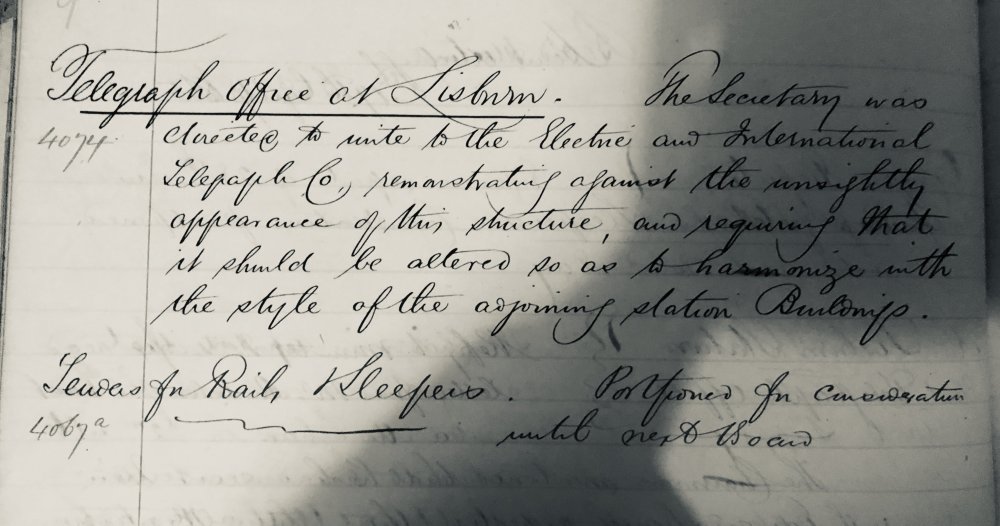 Telegraph Office at Lisburn. The Secretary was
4074 directed to write to the Electric and International
Telegraph Co., remonstrating against the unsightly
appearance of this structure, and requiring that
it should be altered so as to harmonize with
the style of the adjoining station Buildings.
Tenders for Rails & Sleepers. Postponed for consideration
4067a until next Board